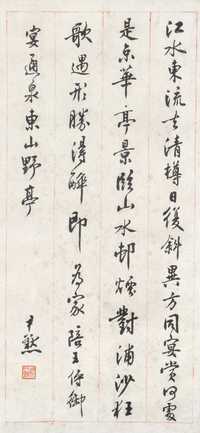 江水東流去清樽日復斜異方同宴賞何處
是京華亭景臨山水邨煙對浦沙狂
歌遇形勝得醉即為家陪王侍御
宴通泉東山野亭
尹默